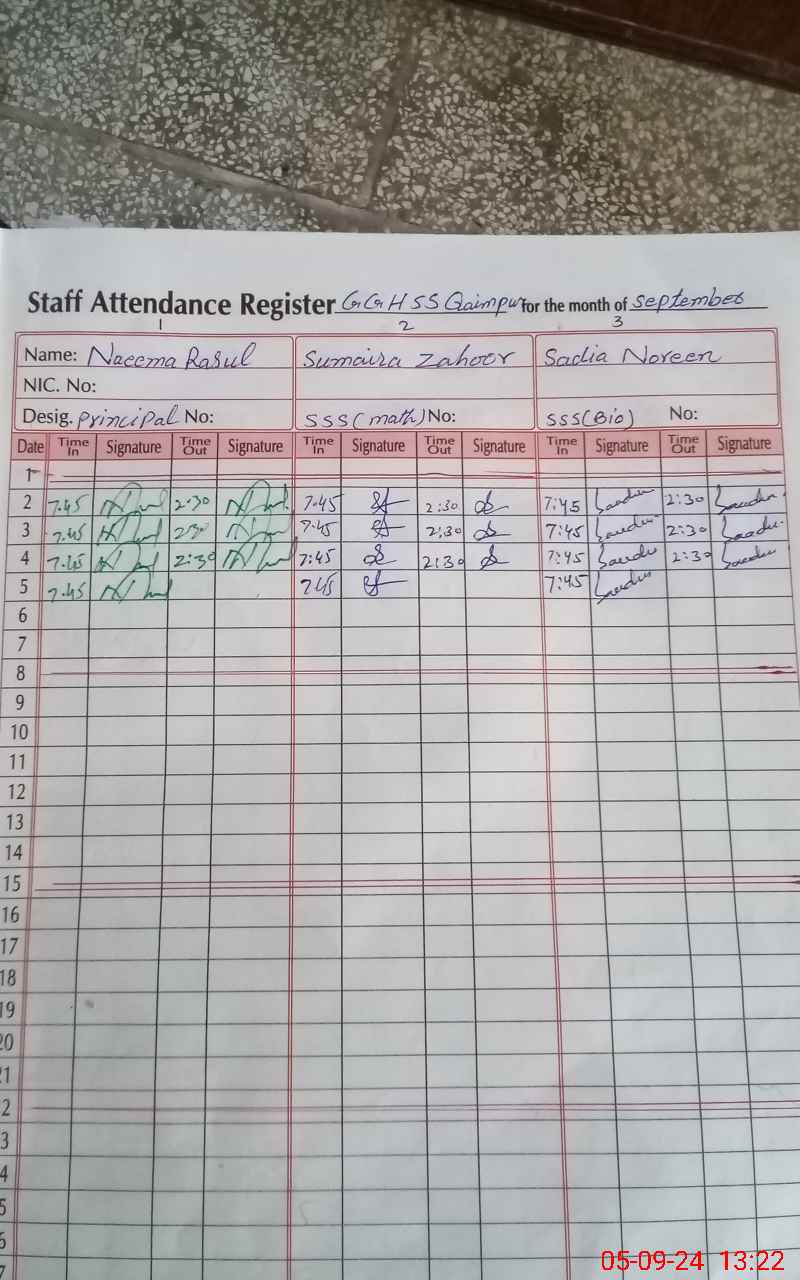 Staff Attendance Register GGHSS Qaimpur for the month of September
1 2 3
Name: Naeema Rasul Sumaira Zahoor Sadia Noreen
NIC. No:
Desig. Principal No: SSS (math) No: SSS (Bio) No:
Date Time In Signature Time Out Signature Time In Signature Time Out Signature Time In Signature Time Out Signature
1
2 7.45 2:30 7.45 2:30 7:45 2:30
3 7.45 2:30 7:45 2:30 7:45 2:30
4 7.45 2:30 7:45 2:30 7:45 2:30
5 7.45 7:45 7:45
6
7
8
9
10
11
12
13
14
15
16
17
18
19
20
21
2
3
4
5
6
7
05-09-24 13:22